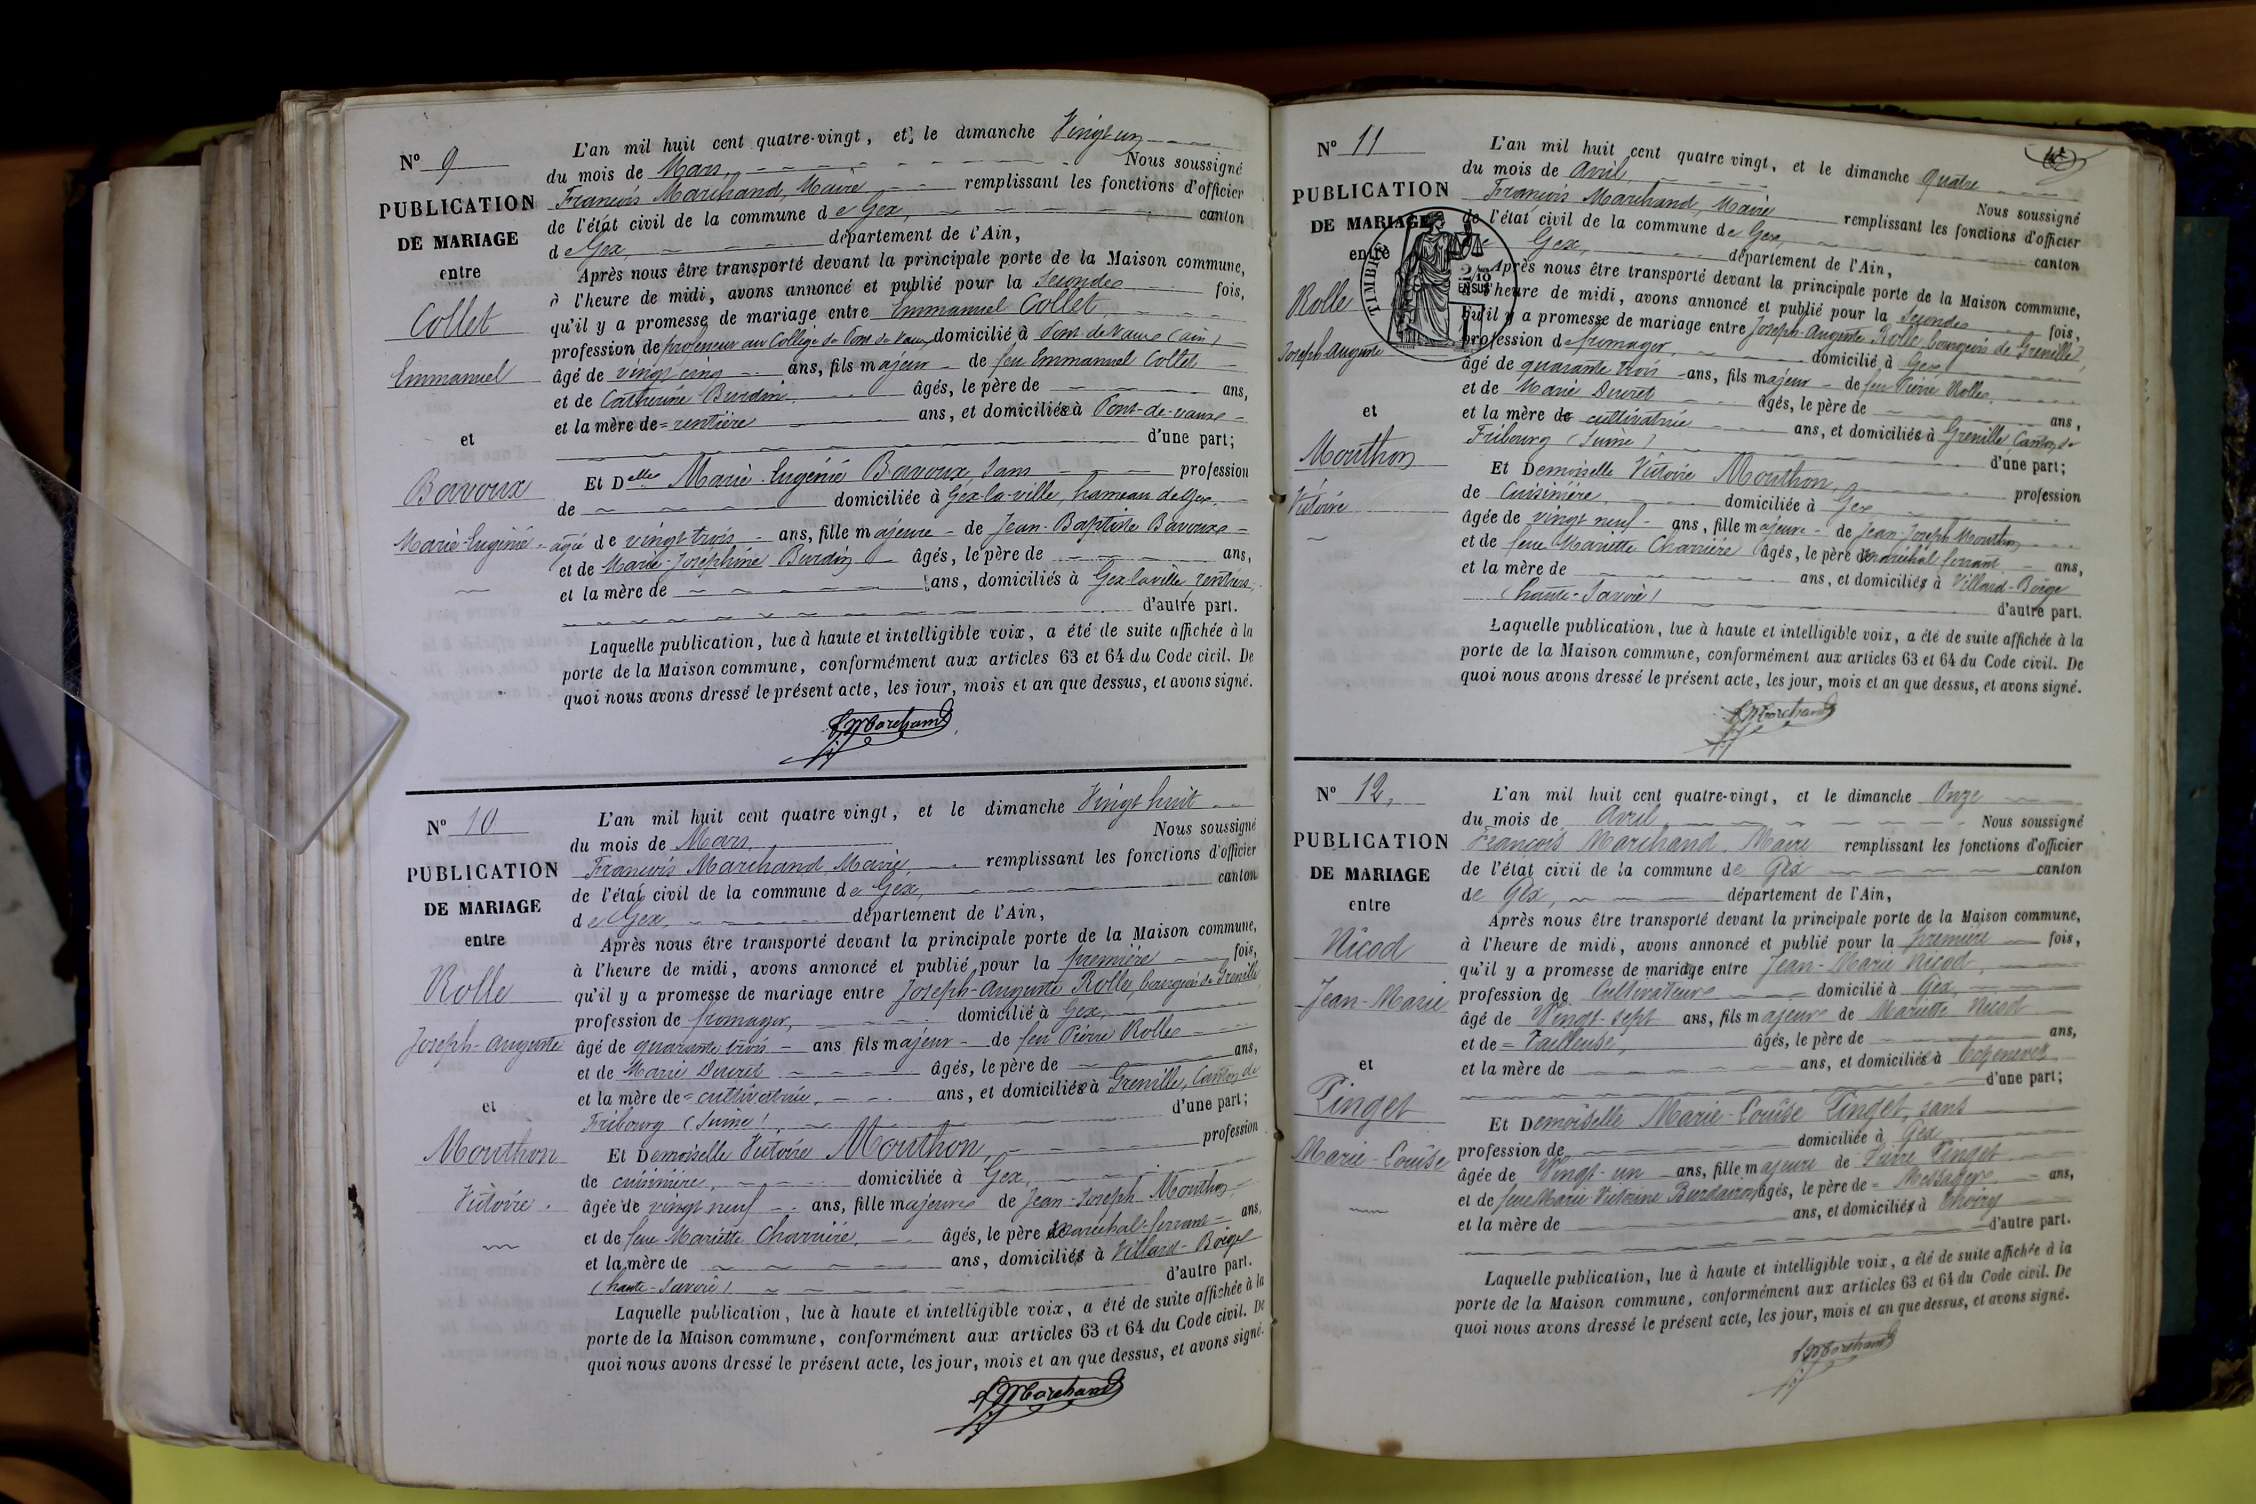 N° 9
PUBLICATION
DE MARIAGE
entre
Collet
Emmanuel
et
Bavoux
Marie-Eugénie
L'an mil huit cent quatre-vingt, et le dimanche Vingt un
du mois de Mars, Nous soussigné
François Marchand, Maire remplissant les fonctions d'officier
de l'état civil de la commune de Gex, canton
de Gex, département de l'Ain,
Après nous être transporté devant la principale porte de la Maison commune,
à l'heure de midi, avons annoncé et publié pour la Seconde fois,
qu'il y a promesse de mariage entre Emmanuel Collet,
profession de professeur au Collège de Pont de Vaux domicilié à Pont-de-Vaux (Ain)
âgé de vingt cinq ans, fils majeur de feu Emmanuel Collet
et de Catherine Burdin, âgés, le père de ans,
et la mère de = rentière ans, et domiciliés à Pont-de-Vaux
d'une part;
Et Delle Marie-Eugénie Bavoux, sans profession
de domiciliée à Gex-la-ville, hameau de Gex,
âgée de vingt trois ans, fille majeure de Jean-Baptiste Bavoux
et de Marie-Joséphine Burdin âgés, le père de ans,
et la mère de ans, domiciliés à Gex-la-ville, rentiers,
d'autre part.
Laquelle publication, lue à haute et intelligible voix, a été de suite affichée à la
porte de la Maison commune, conformément aux articles 63 et 64 du Code civil. De
quoi nous avons dressé le présent acte, les jour, mois et an que dessus, et avons signé.
F Marchand
N° 10
PUBLICATION
DE MARIAGE
entre
Rolle
Joseph-Auguste
et
Mouthon
Victoire
L'an mil huit cent quatre vingt, et le dimanche Vingt huit
du mois de Mars, Nous soussigné
François Marchand Maire, remplissant les fonctions d'officier
de l'état civil de la commune de Gex, canton
de Gex, département de l'Ain,
Après nous être transporté devant la principale porte de la Maison commune,
à l'heure de midi, avons annoncé et publié pour la première fois,
qu'il y a promesse de mariage entre Joseph-Auguste Rolle, bourgeois de Grenille
profession de fromager, domicilié à Gex,
âgé de quarante trois ans fils majeur de feu Pierre Rolle
et de Marie Ducret âgés, le père de ans,
et la mère de = cultivatrice, ans, et domiciliés à Grenille, Canton de
Fribourg (Suisse), d'une part;
Et Demoiselle Victoire Mouthon, profession
de cuisinière, domiciliée à Gex,
âgée de vingt neuf ans, fille majeure de Jean-Joseph Mouthon
et de feue Mariette Charrière, âgés, le père maréchal-ferrant ans,
et la mère de ans, domiciliés à Villard-Boëge
(haute-Savoie) d'autre part.
Laquelle publication, lue à haute et intelligible voix, a été de suite affichée à la
porte de la Maison commune, conformément aux articles 63 et 64 du Code civil. De
quoi nous avons dressé le présent acte, les jour, mois et an que dessus, et avons signé.
F Marchand
N° 11
PUBLICATION
DE MARIAGE
entre
Rolle
Joseph-Auguste
et
Mouthon
Victoire
TIMBRE
2/10
EN SUS
L'an mil huit cent quatre vingt, et le dimanche Quatre
du mois de Avril, Nous soussigné
François Marchand, Maire remplissant les fonctions d'officier
de l'état civil de la commune de Gex, canton
de Gex, département de l'Ain,
Après nous être transporté devant la principale porte de la Maison commune,
à l'heure de midi, avons annoncé et publié pour la Seconde fois,
qu'il y a promesse de mariage entre Joseph-Auguste Rolle, bourgeois de Grenille,
profession de fromager, domicilié à Gex
âgé de quarante trois ans, fils majeur de feu Pierre Rolle,
et de Marie Ducret âgés, le père de ans,
et la mère de cultivatrice ans, et domiciliés à Grenille, Canton de
Fribourg (Suisse) d'une part;
Et Demoiselle Victoire Mouthon, profession
de Cuisinière, domiciliée à Gex
âgée de vingt neuf ans, fille majeure de Jean-Joseph Mouthon
et de feue Mariette Charrière âgés, le père maréchal ferrant ans,
et la mère de ans, et domiciliés à Villard-Boëge
(haute-Savoie) d'autre part.
Laquelle publication, lue à haute et intelligible voix, a été de suite affichée à la
porte de la Maison commune, conformément aux articles 63 et 64 du Code civil. De
quoi nous avons dressé le présent acte, les jour, mois et an que dessus, et avons signé.
F Marchand
N° 12,
PUBLICATION
DE MARIAGE
entre
Nicod
Jean-Marie
et
Pinget
Marie-Louise
L'an mil huit cent quatre-vingt, et le dimanche Onze
du mois de Avril, Nous soussigné
François Marchand, Maire remplissant les fonctions d'officier
de l'état civil de la commune de Gex canton
de Gex, département de l'Ain,
Après nous être transporté devant la principale porte de la Maison commune,
à l'heure de midi, avons annoncé et publié pour la première fois,
qu'il y a promesse de mariage entre Jean-Marie Nicod,
profession de Cultivateur domicilié à Gex,
âgé de Vingt-sept ans, fils majeur de Mariette Nicod
et de = Tailleuse, âgés, le père de ans,
et la mère de ans, et domiciliés à
d'une part;
Et Demoiselle Marie-Louise Pinget, sans
profession de domiciliée à Gex
âgée de Vingt-un ans, fille majeure de Pinget
et de feue Marie Victorine âgés, le père de = Messager, ans,
et la mère de ans, et domiciliés à Thoiry
d'autre part.
Laquelle publication, lue à haute et intelligible voix, a été de suite affichée à la
porte de la Maison commune, conformément aux articles 63 et 64 du Code civil. De
quoi nous avons dressé le présent acte, les jour, mois et an que dessus, et avons signé.
F Marchand